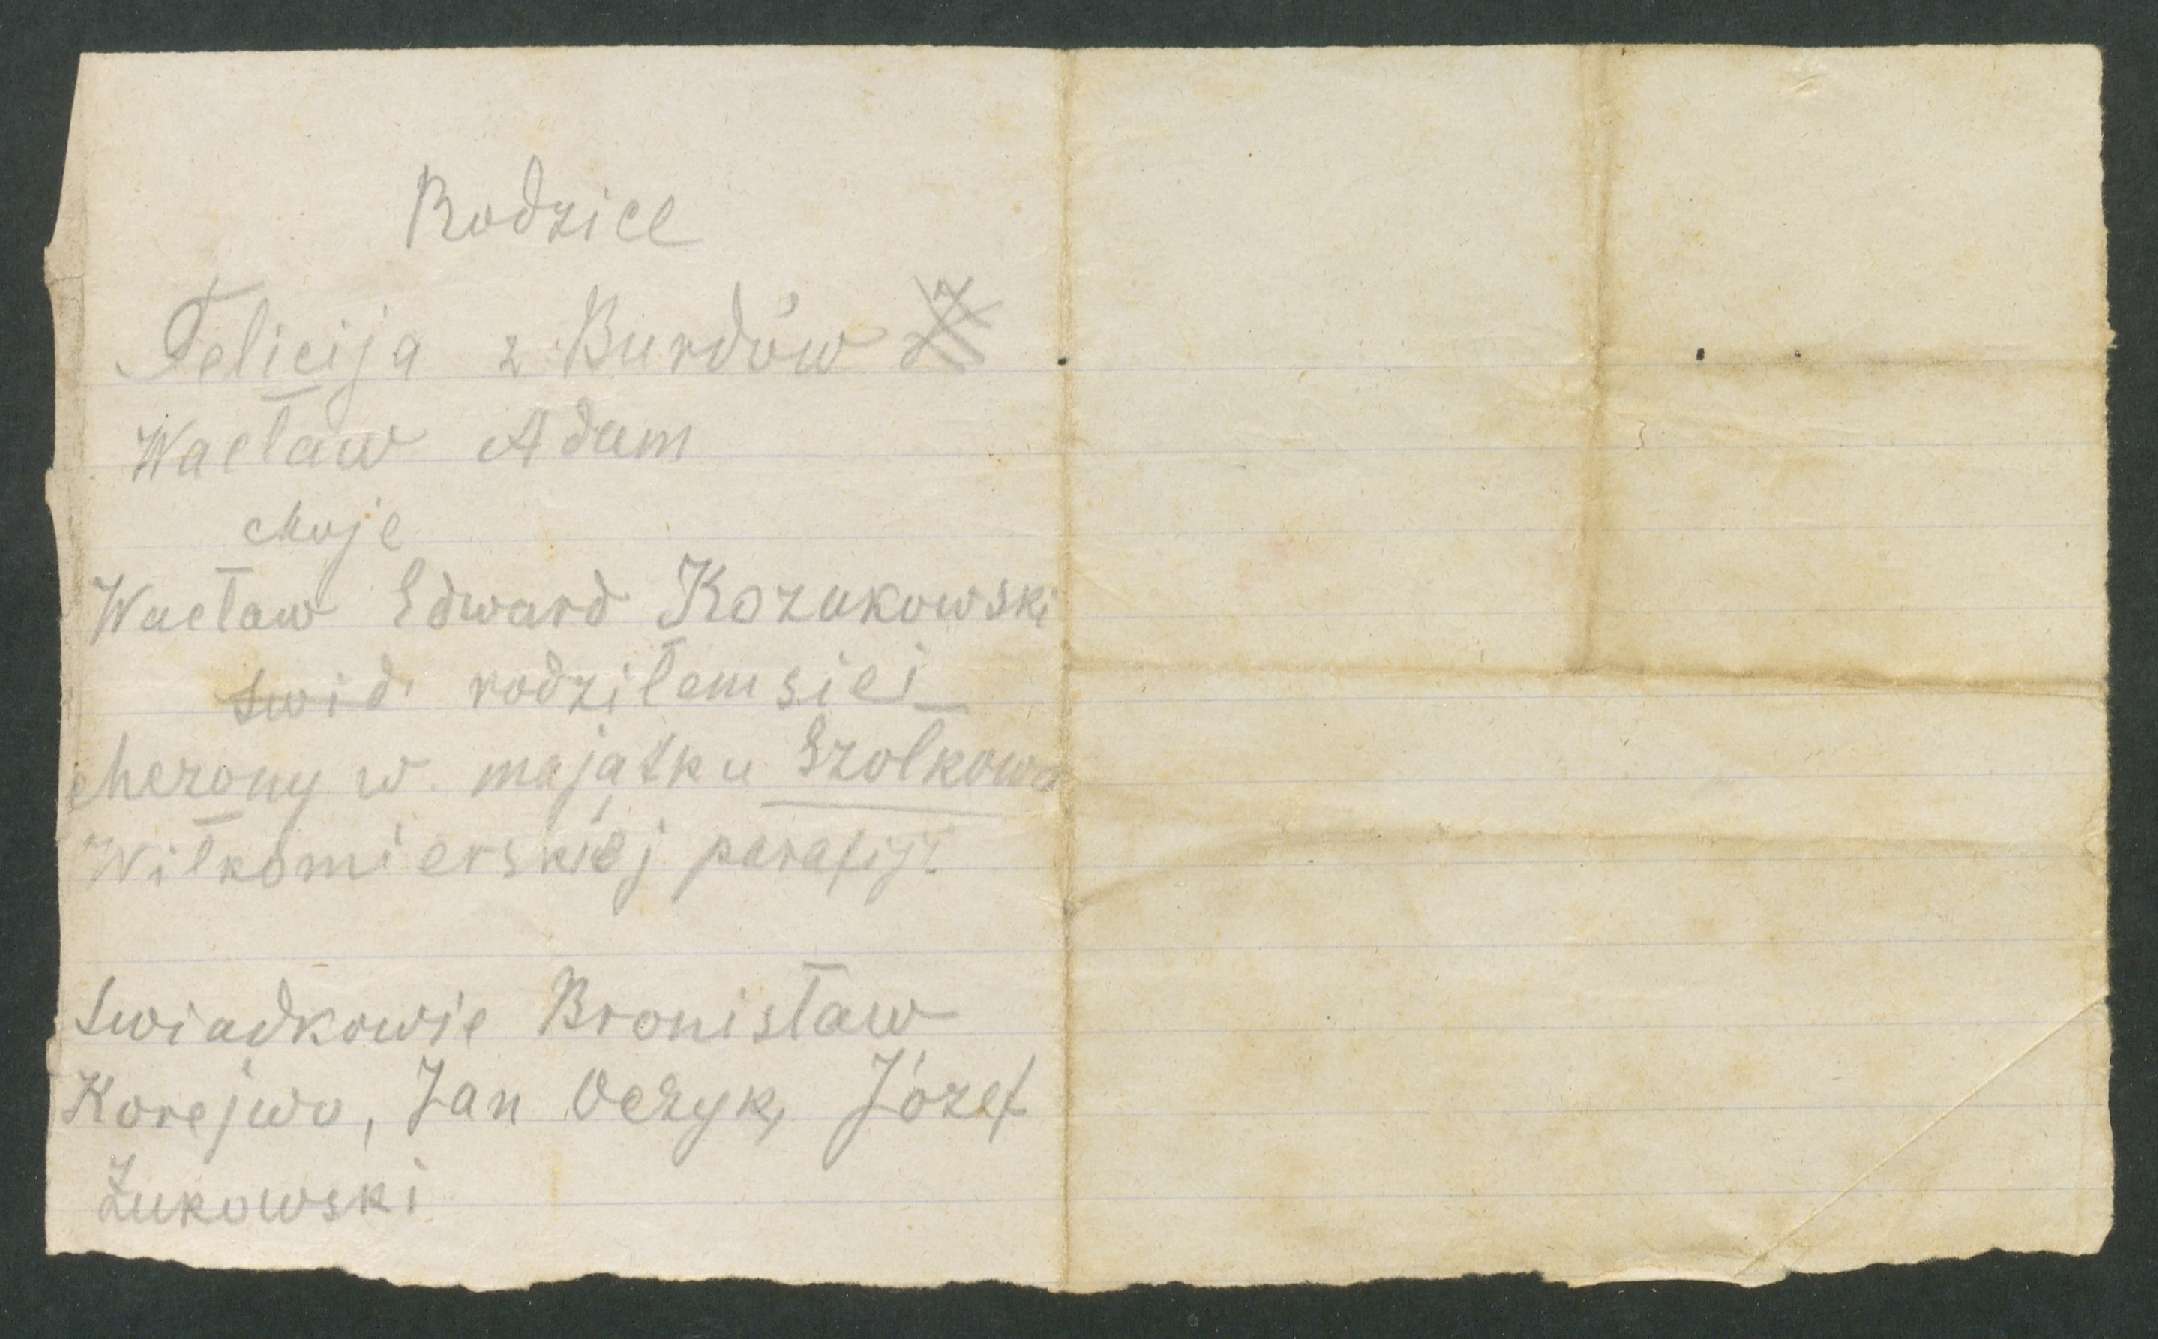 Rodzice
Felicija z Burdów
Wacław Adam
Moje
Wacław Edward Kozakowski
rodziłem siei
w majątku Szołkowo
Wiłkomierskiej parafiji
Swiadkowie Bronisław
Korejwo, Jan Józef
Żukowski